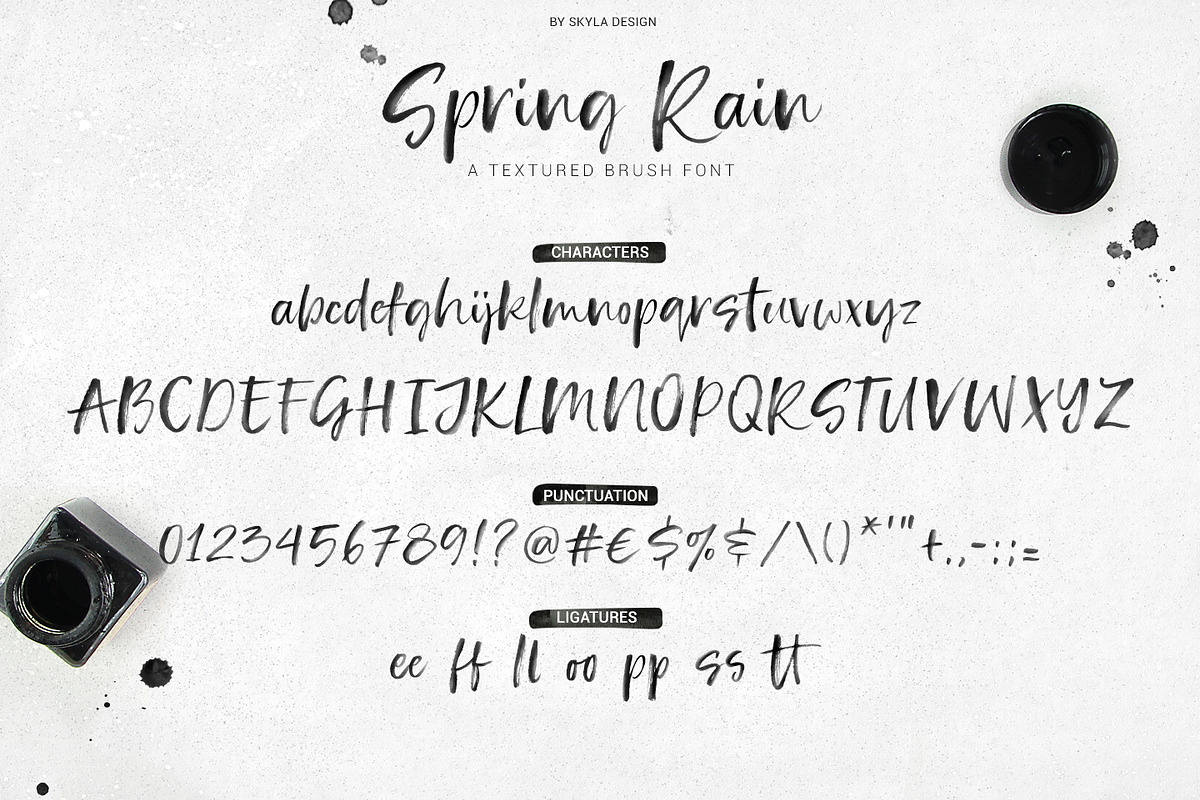 BY SKYLA DESIGN
Spring Rain
A TEXTURED BRUSH FONT
CHARACTERS
abcdefghijklmnopqrstuvwxyz
ABCDEFGHIJKLMNOPQRSTUVWXYZ
PUNCTUATION
0123456789!?@#€$%&/\()*'"+.,-:;=
LIGATURES
ee ff ll oo pp ss tt